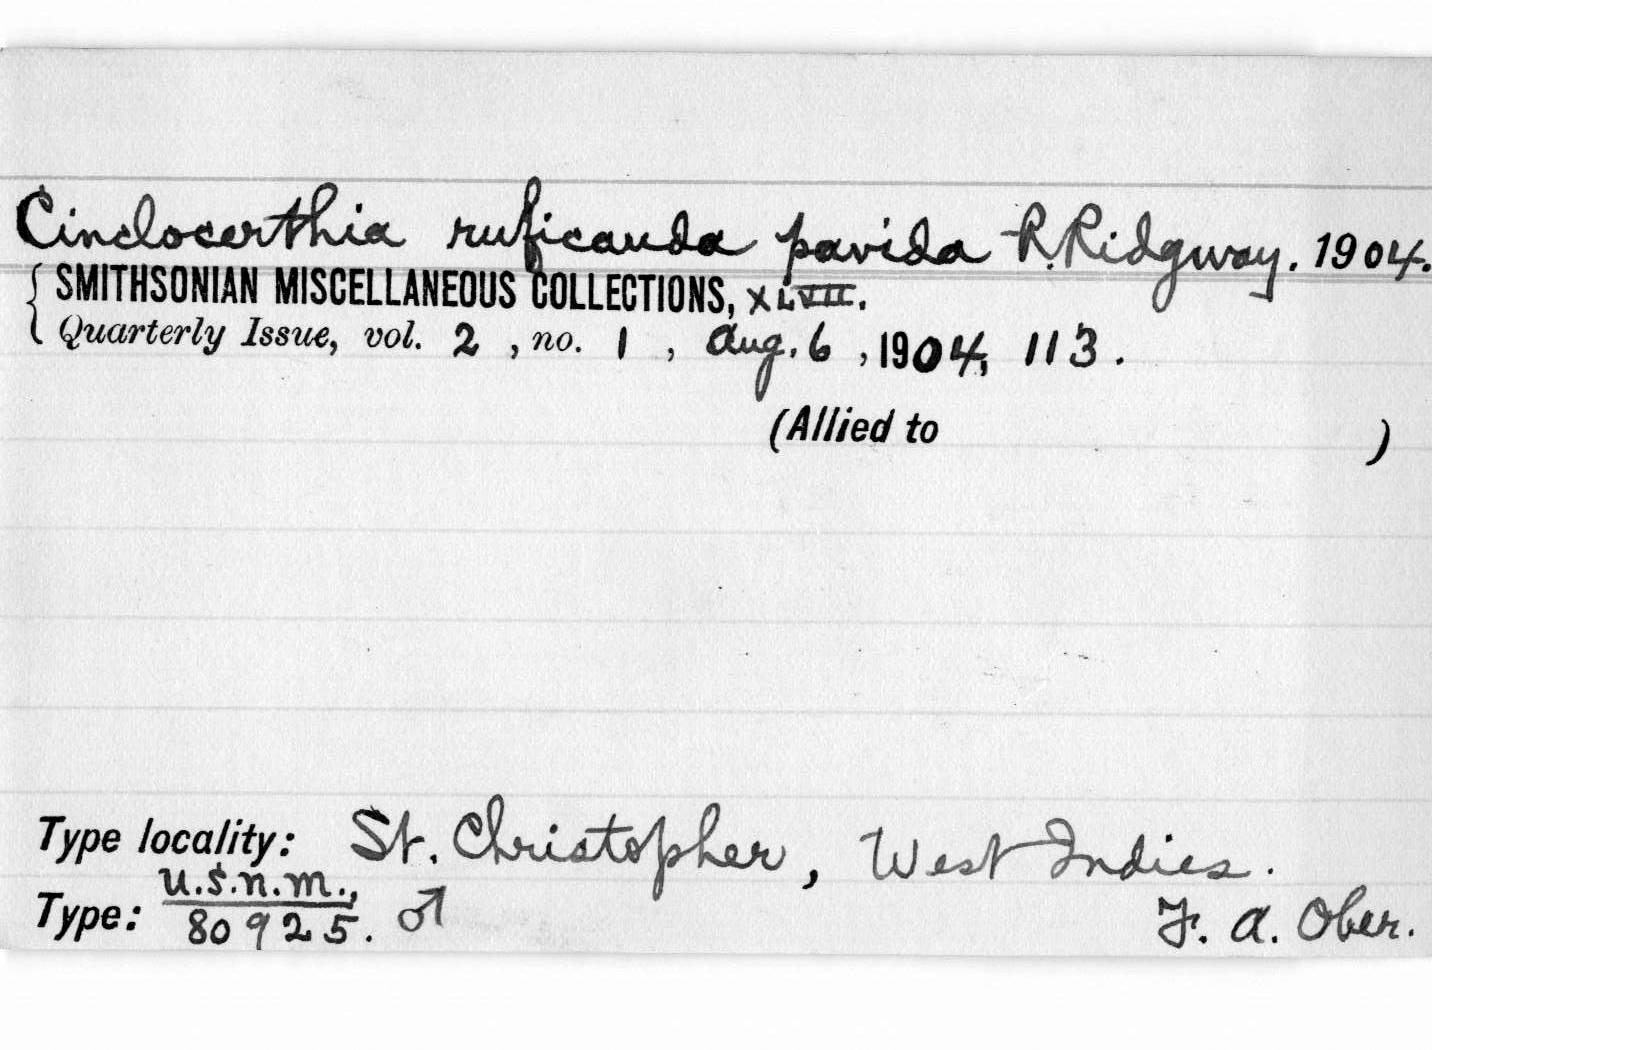 Cinclocerthia ruficauda pavida R. Ridgway. 1904.
SMITHSONIAN MISCELLANEOUS COLLECTIONS, XLVII.
Quarterly Issue, vol. 2, no. 1, Aug. 6, 1904, 113.
(Allied to )
Type locality: St. Christopher, West Indies.
U.S.N.M.,
Type: 80925. ♂ F. A. Ober.